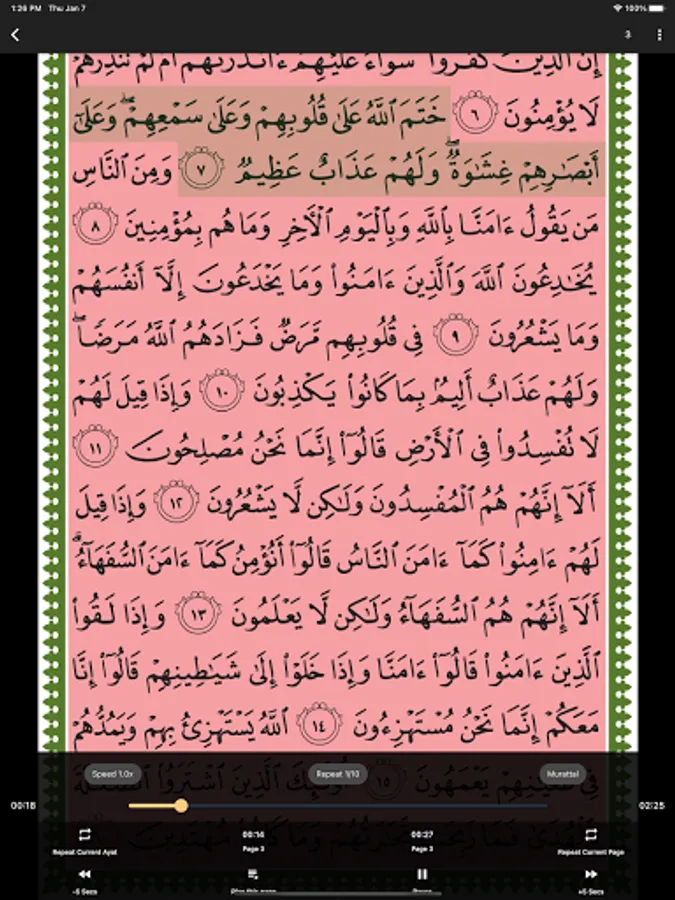 1:26 PM Thu Jan 7
100%
3
إِنَّ ٱلَّذِينَ كَفَرُوا۟ سَوَآءٌ عَلَيْهِمْ ءَأَنذَرْتَهُمْ أَمْ لَمْ تُنذِرْهُمْ
لَا يُؤْمِنُونَ ٦ خَتَمَ ٱللَّهُ عَلَىٰ قُلُوبِهِمْ وَعَلَىٰ سَمْعِهِمْ ۖ وَعَلَىٰٓ
أَبْصَـٰرِهِمْ غِشَـٰوَةٌ ۖ وَلَهُمْ عَذَابٌ عَظِيمٌ ٧ وَمِنَ ٱلنَّاسِ
مَن يَقُولُ ءَامَنَّا بِٱللَّهِ وَبِٱلْيَوْمِ ٱلْـَٔاخِرِ وَمَا هُم بِمُؤْمِنِينَ ٨
يُخَـٰدِعُونَ ٱللَّهَ وَٱلَّذِينَ ءَامَنُوا۟ وَمَا يَخْدَعُونَ إِلَّآ أَنفُسَهُمْ
وَمَا يَشْعُرُونَ ٩ فِى قُلُوبِهِم مَّرَضٌ فَزَادَهُمُ ٱللَّهُ مَرَضًا ۖ
وَلَهُمْ عَذَابٌ أَلِيمٌۢ بِمَا كَانُوا۟ يَكْذِبُونَ ١٠ وَإِذَا قِيلَ لَهُمْ
لَا تُفْسِدُوا۟ فِى ٱلْأَرْضِ قَالُوٓا۟ إِنَّمَا نَحْنُ مُصْلِحُونَ ١١
أَلَآ إِنَّهُمْ هُمُ ٱلْمُفْسِدُونَ وَلَـٰكِن لَّا يَشْعُرُونَ ١٢ وَإِذَا قِيلَ
لَهُمْ ءَامِنُوا۟ كَمَآ ءَامَنَ ٱلنَّاسُ قَالُوٓا۟ أَنُؤْمِنُ كَمَآ ءَامَنَ ٱلسُّفَهَآءُ ۗ
أَلَآ إِنَّهُمْ هُمُ ٱلسُّفَهَآءُ وَلَـٰكِن لَّا يَعْلَمُونَ ١٣ وَإِذَا لَقُوا۟
ٱلَّذِينَ ءَامَنُوا۟ قَالُوٓا۟ ءَامَنَّا وَإِذَا خَلَوْا۟ إِلَىٰ شَيَـٰطِينِهِمْ قَالُوٓا۟ إِنَّا
مَعَكُمْ إِنَّمَا نَحْنُ مُسْتَهْزِءُونَ ١٤ ٱللَّهُ يَسْتَهْزِئُ بِهِمْ وَيَمُدُّهُمْ
Speed 1.0x Repeat 1/10 Murattal
فِى طُغْيَـٰنِهِمْ يَعْمَهُونَ ١٥ أُو۟لَـٰٓئِكَ ٱلَّذِينَ ٱشْتَرَوُا۟ ٱلضَّلَـٰلَةَ
00:18 02:25
00:14 00:27
Repeat Current Ayat Page 3 Page 3 Repeat Current Page
-5 Secs +5 Secs